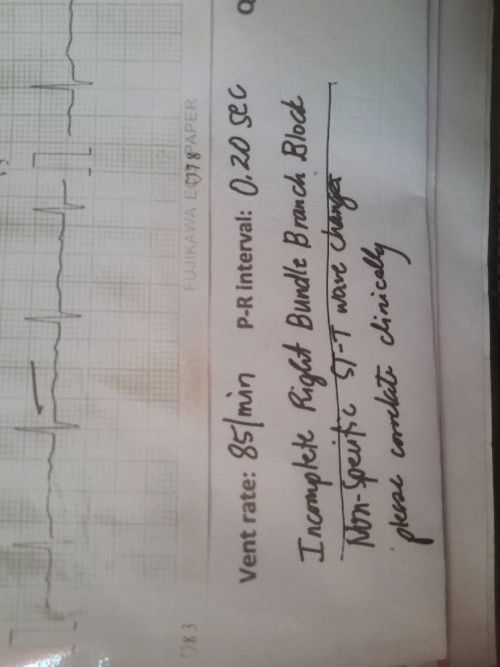 FUJIKAWA E PAPER
Vent rate: 85/min P-R interval: 0.20 sec Q
Incomplete Right Bundle Branch Block
Non-Specific ST-T wave changes
please correlate clinically